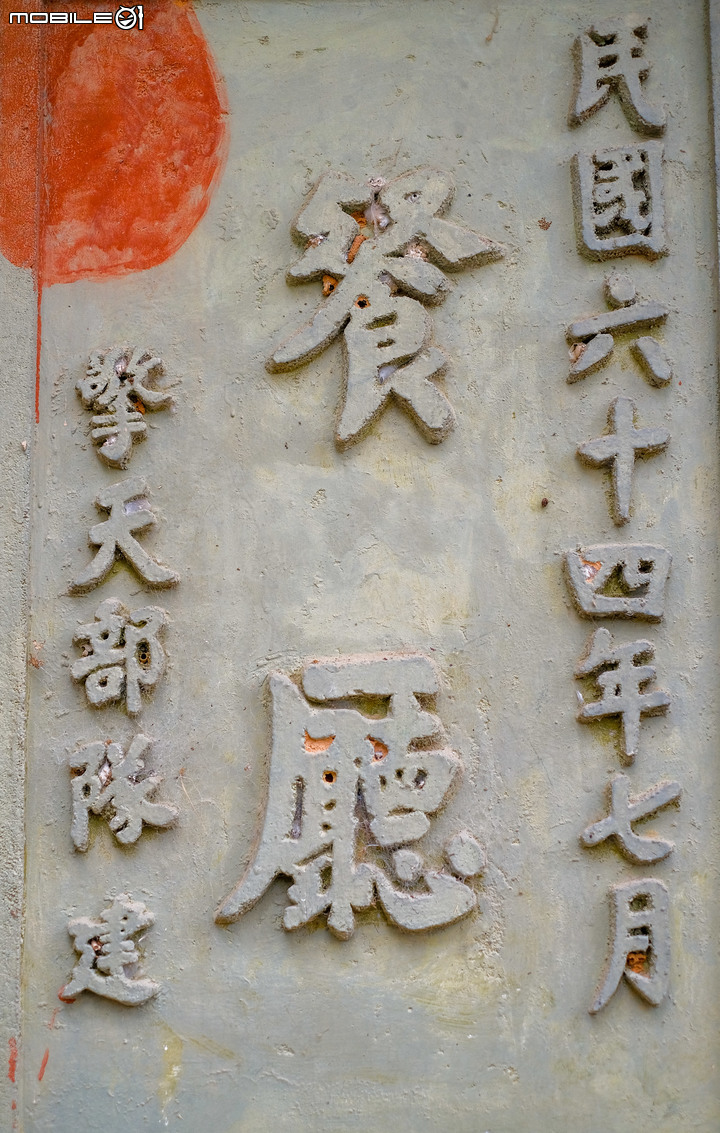 MOBILE01
民國六十四年七月
餐廳
擎天部隊建